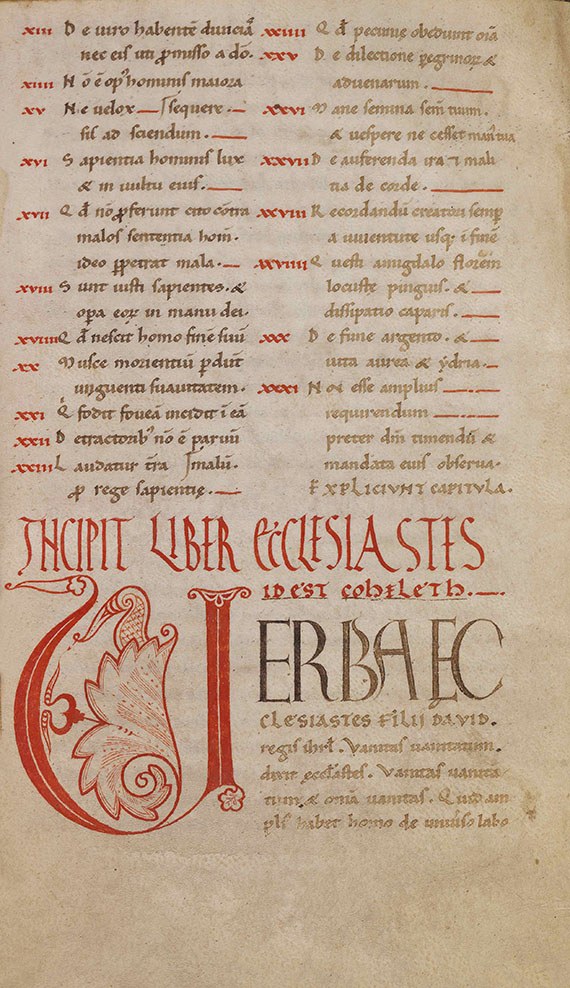 xiii De uiro habentē diuiciā
nec eis uti ꝑmisso a dō.
xiiii Nō ē op᾽ hominis maiora
xv Ne uelox sequere
fil ad sciendum.
xvi Sapientia hominis lux
& in uultu eius.
xvii Qd̄ nō ꝓferunt cito cōtra
malos sententia hom̄.
ideo ꝑpetrat mala.
xviii Sunt iusti sapientes. &
opa eoꝝ in manu dei.
xviiii Qd̄ nescit homo finē suū
xx Musce morientiū ꝑdūt
unguenti suauitatem.
xxi Q̇ fodit foueā incidit ī eā
xxii Detractorib᾽ nō ē paruū
xxiii Laudatur t̄ra malū.
ꝓ rege sapientię.
xxiiii Qd̄ pecunię obediunt oīā
xxv De dilectione ꝑegrinoꝝ &
aduenarum.
xxvi Mane semina sem̄ tuum.
& uespere ne cesset man᾽tua
xxvii De auferenda ira & mali
tia de corde.
xxviii Recordandū creatori semꝑ
a iuuentute usq; ī finē
xxviiii Questi amigdalo florem̄
locustę pinguis. &
dissipatio caparis.
xxx De fune argento. &
uita aurea & ẏdria.
xxxi Non esse amplius
requirendum
preter dm̄ timendū &
mandata eius obserua.
EXPLICIUNT CAPITULA.
INCIPIT LIBER ECCLESIASTES
IDEST COHELETH.
UERBA EC
CLESIASTES FILII DAVID.
regis ihrl̄. Vanitas uanitatum.
dixit eccl̄astes. Vanitas uanita
tum & omīa uanitas. Quid am
pl᾽s habet homo de uniu᾽so labo